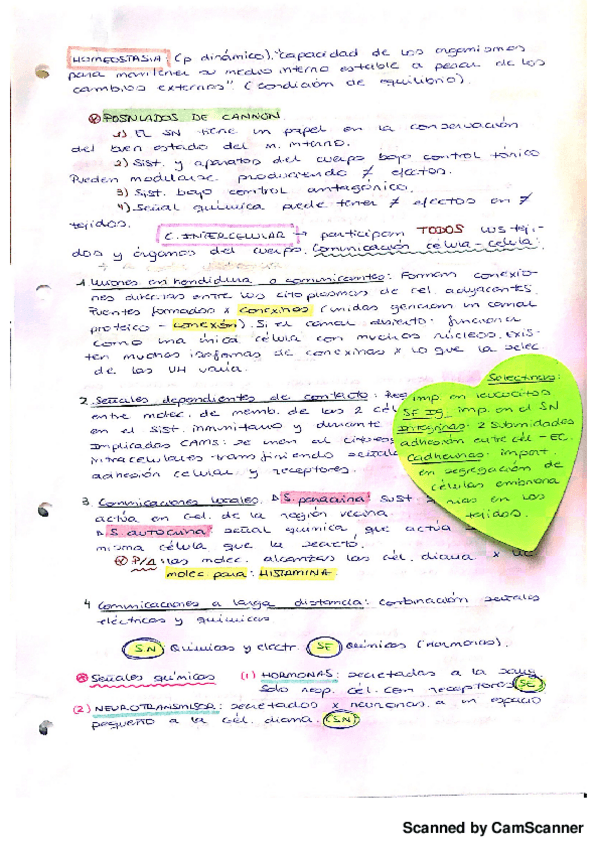 HOMEOSTASIA (p dinámico). "capacidad de los organismos
para mantener su medio interno estable a pesar de los
cambios externos" (condición de equilibrio).
POSTULADOS DE CANNON
1) El SN tiene un papel en la conservación
del bien estado del m. interno.
2) Sist. y aparatos del cuerpo bajo control tónico
Pueden modularse produciendo ≠ efectos.
3) Sist. bajo control antagónico.
4) Señal química puede tener ≠ efectos en ≠
tejidos.
C. INTERCELULAR → participan TODOS los teji-
dos y órganos del cuerpo. Comunicación célula-célula:
1. Uniones en hendidura o comunicantes: Forman conexio-
nes directas entre los citoplasmas de cél. adyacentes.
Puentes formados x conexinas (unidas generan un canal
proteico - conexón). Si el canal abierto: funcionan
como una única célula con muchos núcleos. Exis-
ten muchas isoformas de conexinas x lo que la selec.
de las UH varía.
2. Señales dependientes de contacto:
entre molec. de memb. de las 2 cél
en el sist. inmunitario y durante
Implicados CAMS: se unen al citoes
intracelulares transfiriendo señale
adhesión celular y receptores.
Selectinas:
imp. en leucocitos
SF Ig imp. en el SN
Integrinas: 2 subunidades
adhesión entre cél - EC.
Cadherinas: import.
en segregación de
células embriona
rias en los
tejidos.
3. Comunicaciones locales. S. paracrina: sust
actúa en cél. de la región vecina.
S. autocrina: señal química que actúa
misma célula que la secretó.
P/A: las molec. alcanzan las cél. diana x
molec para: HISTAMINA
4 Comunicaciones a larga distancia: combinación señales
eléctricas y químicas
SN Químicas y electr. SE Químicas (hormonas).
Señales químicas (1) HORMONAS: secretadas a la sang.
Solo resp. cél. con receptores SE
(2) NEUROTRANSMISOR: secretados x neuronas a un espacio
pequeño a la cél. diana. (SN)
Scanned by CamScanner